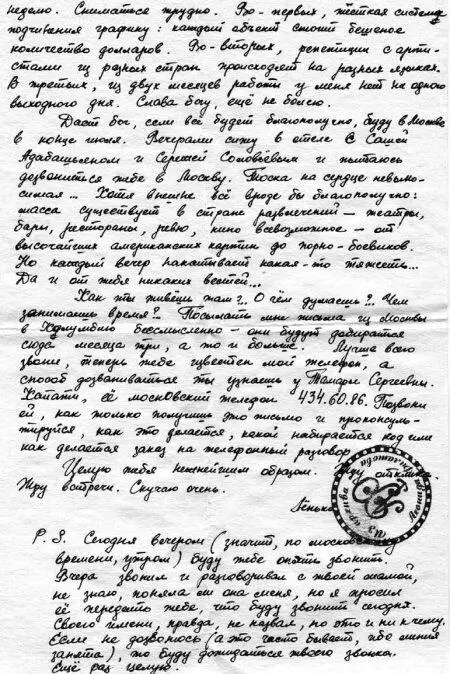 неделю. Сниматься трудно. Во-первых, жёсткая система
подчинения графику: каждый объект стоит бешеное
количество долларов. Во-вторых, репетиции с арти-
стами из разных стран происходят на разных языках.
В третьих, из двух месяцев работы у меня нет ни одного
выходного дня. Слава богу, ещё не болею.
Даст бог, если всё будет благополучно, буду в Москве
в конце июля. Вечерами сижу в отеле с Сашей
Адабашьяном и Серёжей Соловьёвым и пытаюсь
дозвониться тебе в Москву. Тоска на сердце невыно-
симая... Хотя внешне всё вроде бы благополучно:
масса существует в стране развлечений — театры,
бары, рестораны, ревю, кино всевозможное — от
высочайших американских картин до порно-боевиков.
Но каждый вечер накатывает какая-то тяжесть...
Да и от тебя никаких вестей...
Как ты живёшь там?.. О чём думаешь?.. Чем
занимаешь время?.. Посылать мне письма из Москвы
в Колумбию бессмысленно — они будут добираться
сюда месяца три, а то и больше. Лучше всего
звони, теперь тебе известен мой телефон, а
способ дозваниваться ты узнаешь у Тамары Сергеевны.
Кстати, её московский телефон 434.60.86. Позвони
ей, как только получишь это письмо и проконсуль-
тируйся, как это делается, какой набирается код или
как делается заказ на телефонный разговор
Целую тебя нежнейшим образом. Жду
Жду встречи. Скучаю очень.
Лёнька
P.S. Сегодня вечером (значит, по московскому
времени, утром) буду тебе опять звонить.
Вчера звонил и разговаривал с твоей мамой,
не знаю, поняла ли она меня, но я просил
её передать тебе, что буду звонить сегодня.
Своего имени, правда, не назвал, но это и ни к чему.
Если не дозвонюсь (а это часто бывает, ибо линия
занята), то буду дожидаться твоего звонка.
Ещё раз целую.